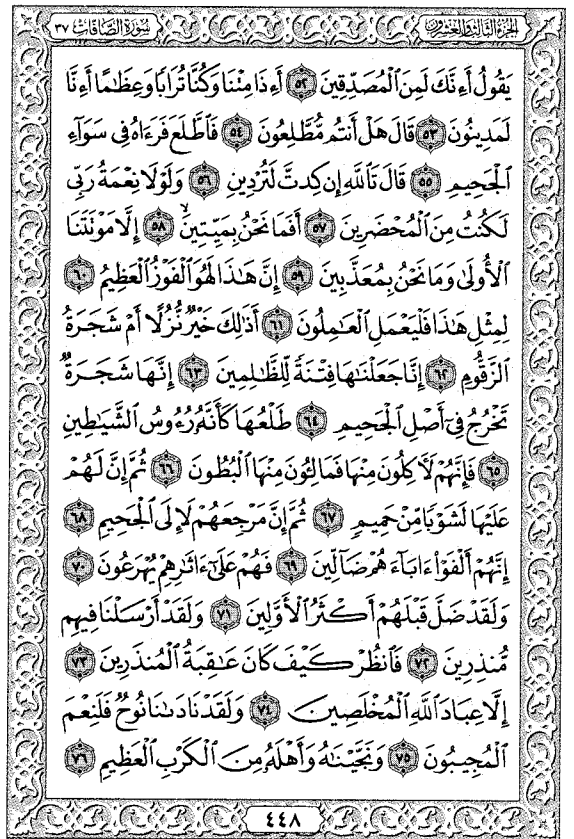 الجزء الثالث والعشرون سورة الصافات ٣٧
يَقُولُ أَءِنَّكَ لَمِنَ الْمُصَدِّقِينَ ٥٢ أَءِذَا مِتْنَا وَكُنَّا تُرَابًا وَعِظَٰمًا أَءِنَّا
لَمَدِينُونَ ٥٣ قَالَ هَلْ أَنتُم مُّطَّلِعُونَ ٥٤ فَاطَّلَعَ فَرَءَاهُ فِي سَوَآءِ
الْجَحِيمِ ٥٥ قَالَ تَاللَّهِ إِن كِدتَّ لَتُرْدِينِ ٥٦ وَلَوْلَا نِعْمَةُ رَبِّي
لَكُنتُ مِنَ الْمُحْضَرِينَ ٥٧ أَفَمَا نَحْنُ بِمَيِّتِينَ ٥٨ إِلَّا مَوْتَتَنَا
الْأُولَىٰ وَمَا نَحْنُ بِمُعَذَّبِينَ ٥٩ إِنَّ هَٰذَا لَهُوَ الْفَوْزُ الْعَظِيمُ ٦٠
لِمِثْلِ هَٰذَا فَلْيَعْمَلِ الْعَٰمِلُونَ ٦١ أَذَٰلِكَ خَيْرٌ نُّزُلًا أَمْ شَجَرَةُ
الزَّقُّومِ ٦٢ إِنَّا جَعَلْنَٰهَا فِتْنَةً لِّلظَّٰلِمِينَ ٦٣ إِنَّهَا شَجَرَةٌ
تَخْرُجُ فِي أَصْلِ الْجَحِيمِ ٦٤ طَلْعُهَا كَأَنَّهُ رُءُوسُ الشَّيَٰطِينِ
٦٥ فَإِنَّهُمْ لَءَاكِلُونَ مِنْهَا فَمَالِـُٔونَ مِنْهَا الْبُطُونَ ٦٦ ثُمَّ إِنَّ لَهُمْ
عَلَيْهَا لَشَوْبًا مِّنْ حَمِيمٍ ٦٧ ثُمَّ إِنَّ مَرْجِعَهُمْ لَإِلَى الْجَحِيمِ ٦٨
إِنَّهُمْ أَلْفَوْا ءَابَآءَهُمْ ضَآلِّينَ ٦٩ فَهُمْ عَلَىٰ ءَاثَٰرِهِمْ يُهْرَعُونَ ٧٠
وَلَقَدْ ضَلَّ قَبْلَهُمْ أَكْثَرُ الْأَوَّلِينَ ٧١ وَلَقَدْ أَرْسَلْنَا فِيهِم
مُّنذِرِينَ ٧٢ فَانظُرْ كَيْفَ كَانَ عَٰقِبَةُ الْمُنذَرِينَ ٧٣
إِلَّا عِبَادَ اللَّهِ الْمُخْلَصِينَ ٧٤ وَلَقَدْ نَادَىٰنَا نُوحٌ فَلَنِعْمَ
الْمُجِيبُونَ ٧٥ وَنَجَّيْنَٰهُ وَأَهْلَهُ مِنَ الْكَرْبِ الْعَظِيمِ ٧٦
٤٤٨